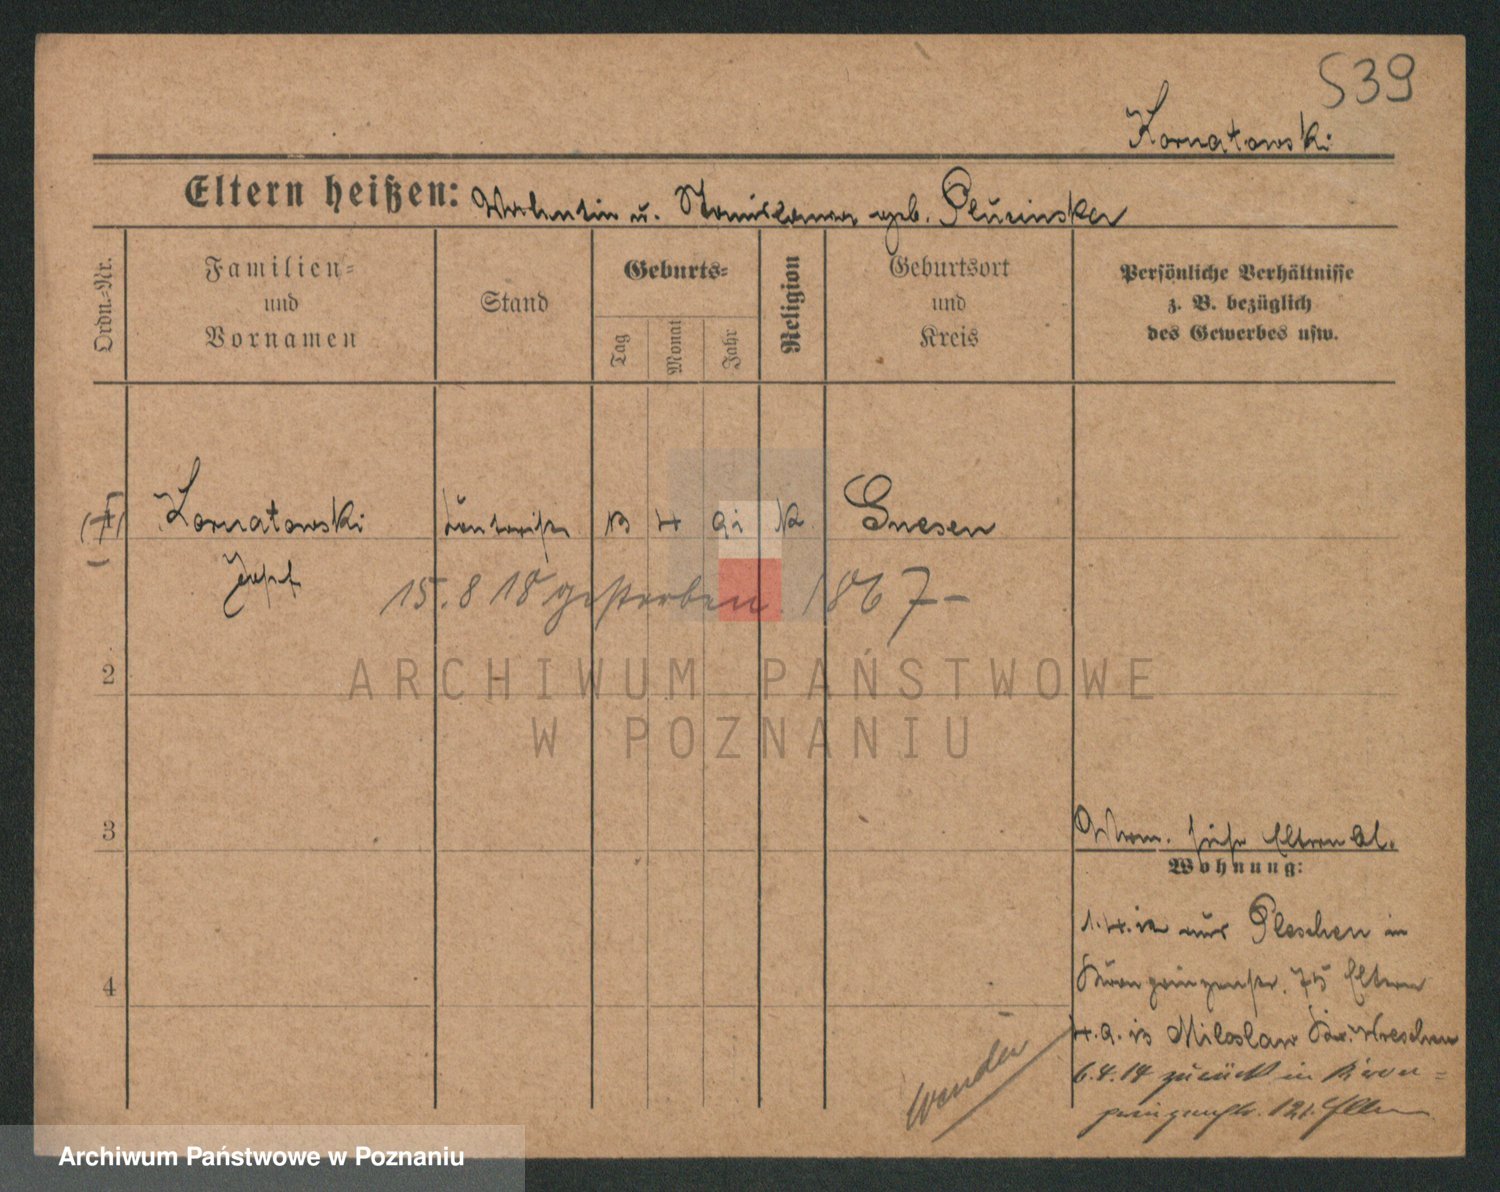 539
Kornatowski
Eltern heißen: Valentin u. Stanislawa geb. Plucinska
Ordn.-Nr.
Familien-
und
Vornamen
Stand
Geburts-
Tag
Monat
Jahr
Religion
Geburtsort
und
Kreis
Persönliche Verhältnisse
z. B. bezüglich
des Gewerbes usw.
1 Kornatowski 4 91 K Gnesen
Josef
15.8 18 gestorben 1867-
2
ARCHIWUM PAŃSTWOWE
W POZNANIU
3
siehe Eltern Bl.
Wohnung:
1.4.12 aus Pleschen in
4
Kronprinzenstr. 75 Eltern
4.9.13 Miloslaw Kr. Wreschen
6.4.14 zurück in Kron-
prinzenstr. 121. Eltern
wenden
Archiwum Państwowe w Poznaniu